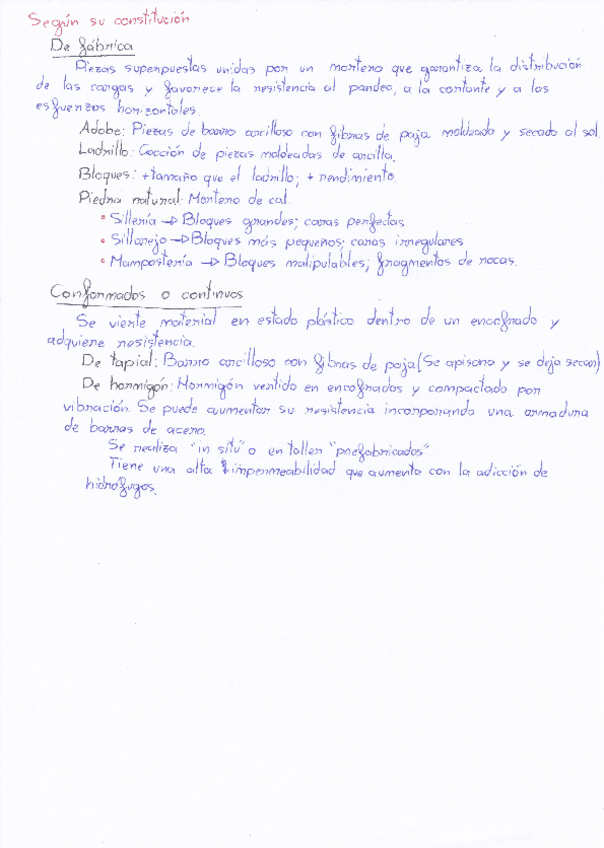 Según su constitución
De fábrica
Piezas superpuestas unidas por un mortero que garantiza la distribución
de las cargas y favorece la resistencia al pandeo, a la cortante y a los
esfuerzos horizontales.
Adobe: Piezas de barro arcilloso con fibras de paja moldeado y secado al sol.
Ladrillo: Cocción de piezas moldeadas de arcilla.
Bloques: +tamaño que el ladrillo; + rendimiento.
Piedra natural: Mortero de cal.
• Sillería → Bloques grandes; caras perfectas
• Sillarejo → Bloques más pequeños; caras irregulares
• Mampostería → Bloques malipulables; fragmentos de rocas.
Conformados o continuos
Se vierte material en estado plástico dentro de un encofrado y
adquiere resistencia.
De tapial: Barro arcilloso con fibras de paja (Se apisona y se deja secar)
De hormigón: Hormigón vertido en encofrados y compactado por
vibración. Se puede aumentar su resistencia incorporando una armadura
de barras de acero.
Se realiza "in situ" o en taller "prefabricados"
Tiene una alta impermeabilidad que aumenta con la adicción de
hidrófugos.